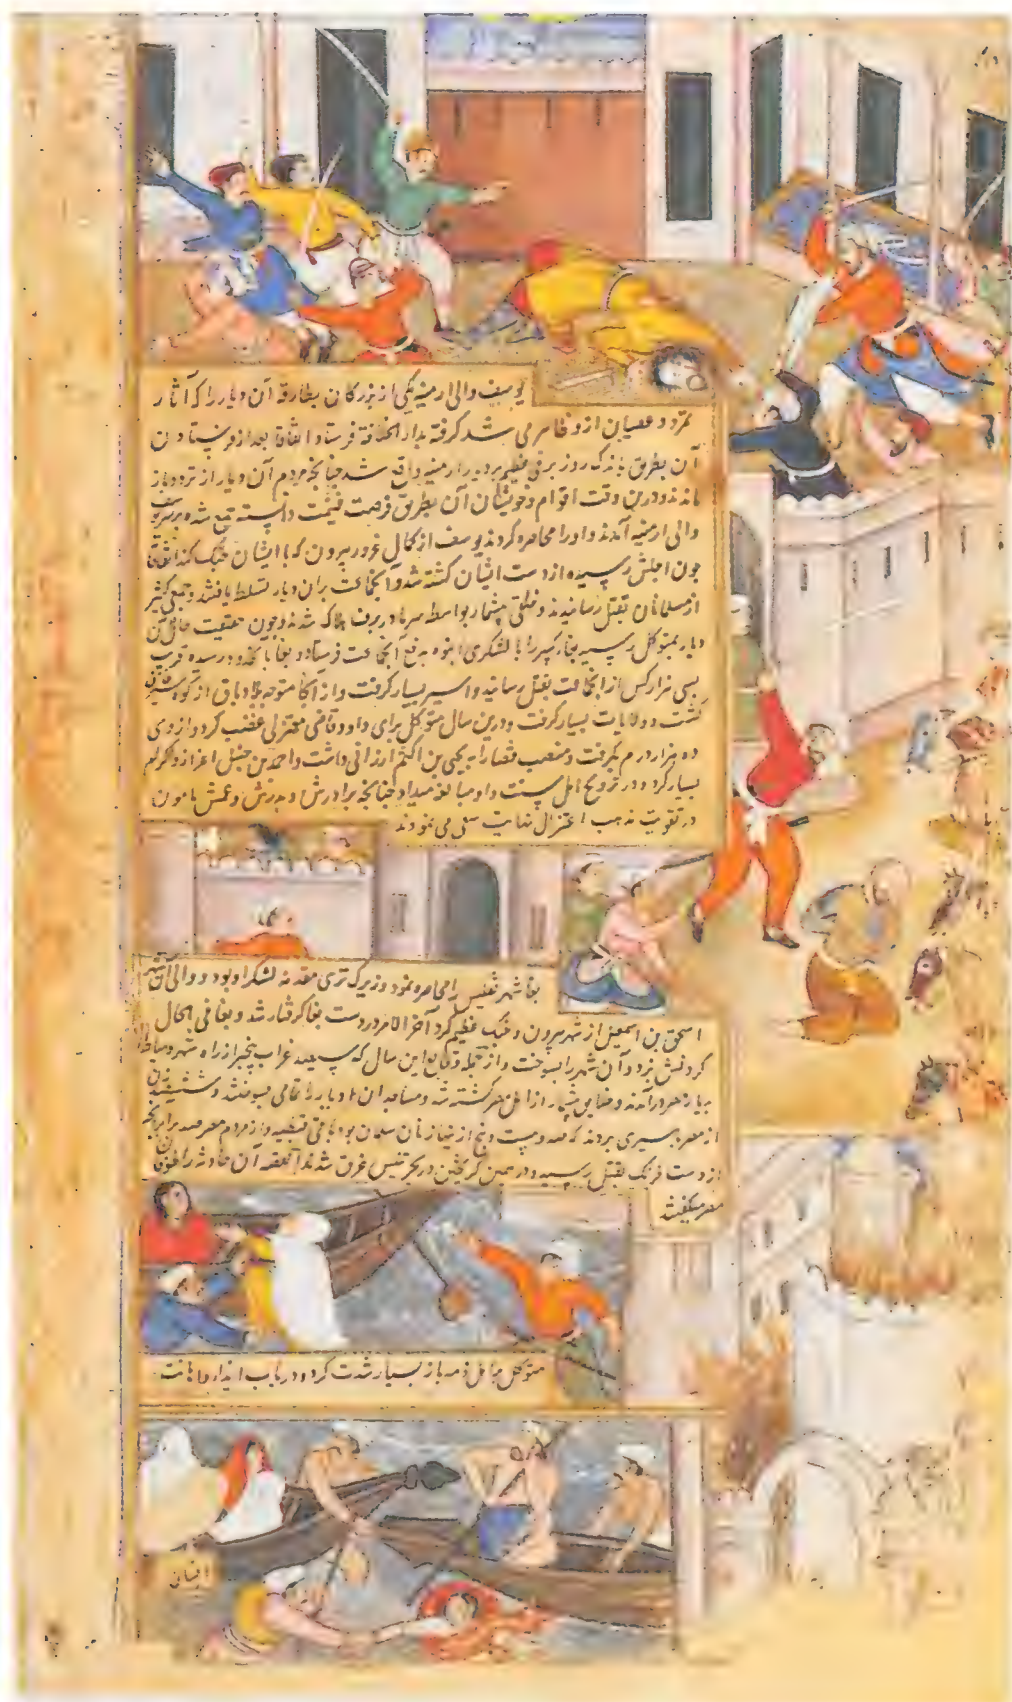 یوسف والی ارمنیه یکی از بزرکان بطارقه آن دیار را که آثار
تمرد و عصیان ازو ظاهر می شد کرفته بدار الخلافة فرستاد اتفاقا بعد از فرستادن
آن بطریق باندک روز برفی عظیم بردیار ارمنیه واقع شد چنانچه مردم آن دیار از تردد باز
ماندند و درین وقت اقوام و خویشان آن بطریق فرصت غنیمت دانسته جمع شده بر سر یوسف
والی ارمنیه آمدند و اورا محاصره کردند یوسف از کمال غرور بیرون که با ایشان جنک کند اتفاقا
چون اجلش رسیده از دست ایشان کشته شد و آنجماعت بران دیار تسلط یافتند و جمعی کثیر
از مسلمانان بقتل رسانیدند و خلقی بیشمار بواسطه سرما در برف هلاک شدند و چون حقیقت حال آن
دیار بمتوکل رسید بغا کبیر را با لشکری انبوه بدفع آنجماعت فرستاد و بغا بآنحدود رسیده قریب
بسی هزار کس از آنجماعت بقتل رسانید و اسیر بسیار کرفت و از آنجا متوجه از کوه
کشت و ولایات بسیار کرفت و درین سال متوکل برای داود قاضی معتزلی غضب کرد و از وی
ده هزار درم بکرفت و منصب قضا را به یحیی بن اکثم ارزانی داشت و احمد بن حنبل اعزاز و اکرام
بسیار کرد و در ترویج اهل سنت داد مبالغه میداد چنانچه برادرش و پدرش و عمش مامون
در تقویت مذهب اعتزال نهایت سعی می نمودند
بغا شهر تفلیس را محاصره نمود و زیرک ترکی مقدمه لشکر او بود و والی آن شهر
اسحق بن اسمعیل از شهر بیرون و جنک عظیم کرد آخر الامر در دست بغا کرفتار شد و بغا فی الحال
کردنش بزد و آن شهر را بسوخت و از جمله وقایع این سال که سیصد غراب پنجر از راه شهر دمیاط
بدیار مصر درآمدند و خلایق بیشمار از اهل مصر کشته شد و مساجد آن دیار را تمامی بسوختند و ششصد زن
از مصر به سیری بردند که صد و بیست و پنج از ینها زنان مسلمان بود باقی قبطیه و از مردم مصر صد برابر آنچه
از دست فرنک بقتل رسید و در همین کریختن در بحر تنیس غرق شدند القصه آن حادثه را طوفان
مصر میکفتند
متوکل بر اهل ذمه باز بسیار شدت کرد و در باب ایذا و اهانت
ایشان